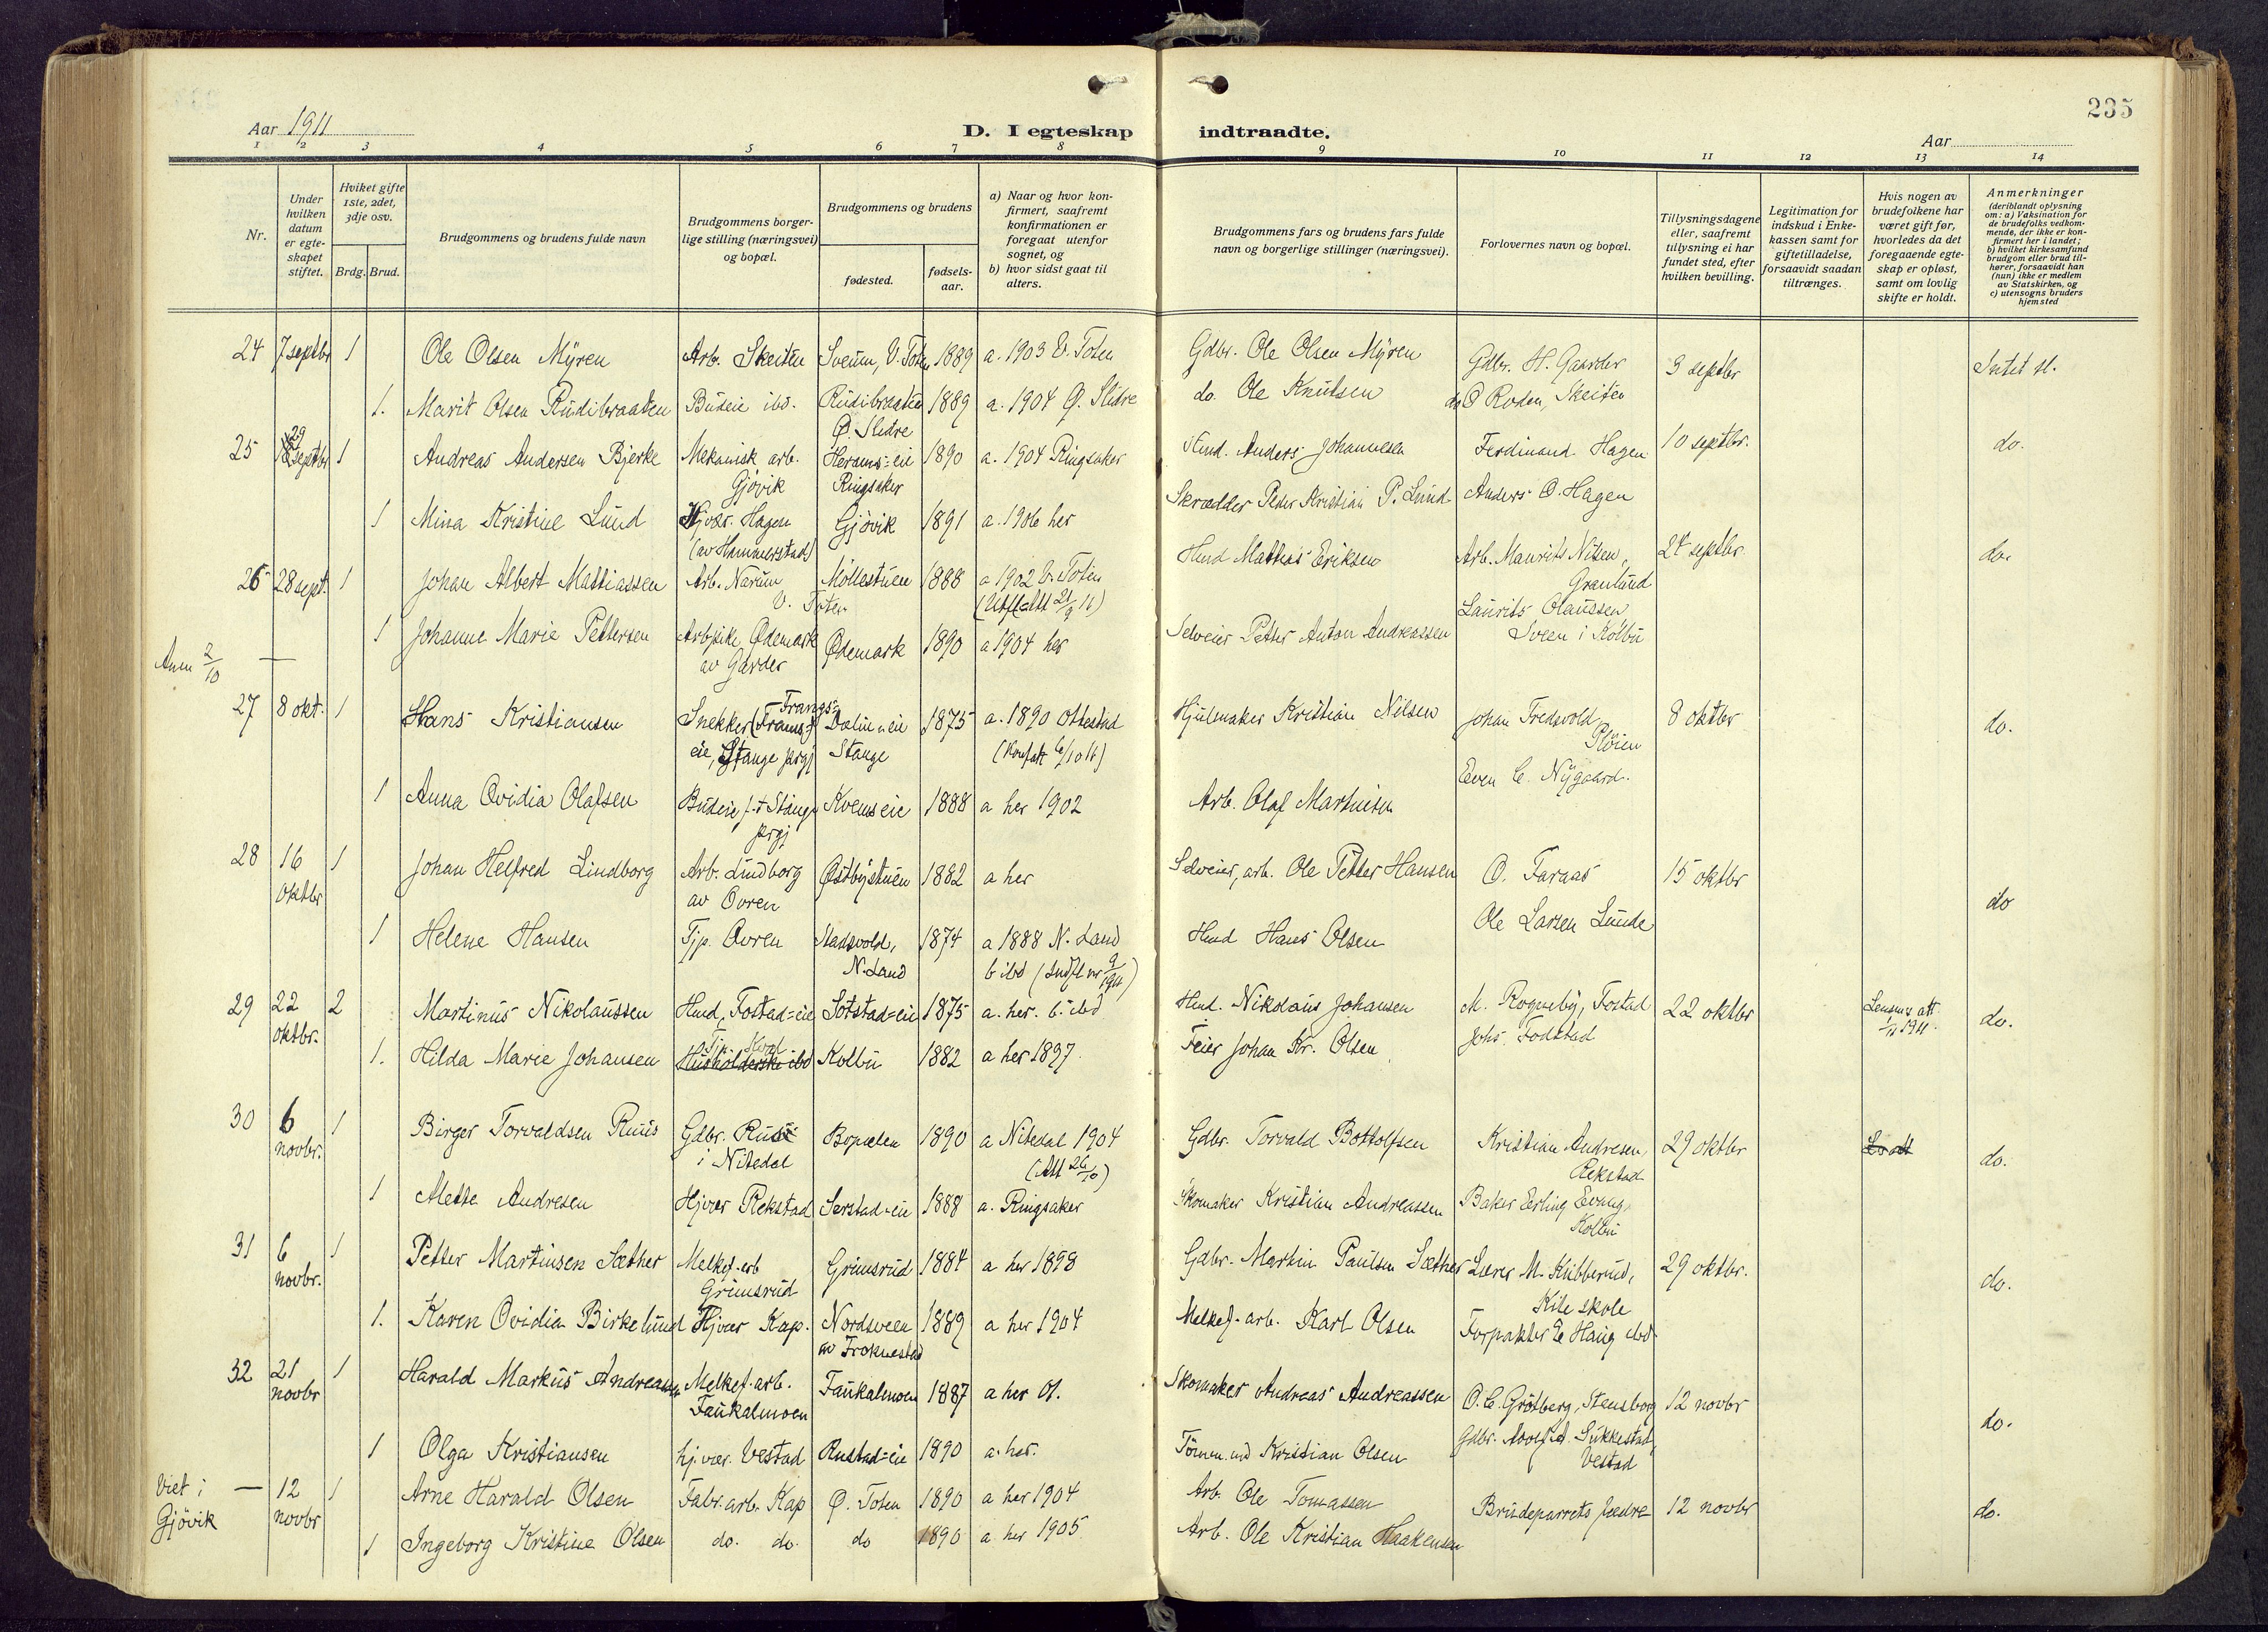 235
Aar 1911
D. I egteskap indtraadte.
Aar
1 2 3 4 5 6 7 8 9 10 11 12 13 14
Nr.
Under hvilken datum er egteskapet stiftet.
Hviket gifte 1ste, 2det, 3dje osv.
Brdg. Brud.
Brudgommens og brudens fulde navn
Brudgommens borgerlige stilling (næringsvei) og bopæl.
Brudgommens og brudens
fødested.
fødselsaar.
a) Naar og hvor konfirmert, saafremt konfirmationen er foregaat utenfor sognet, og
b) hvor sidst gaat til alters.
Brudgommens fars og brudens fars fulde navn og borgerlige stillinger (næringsvei).
Forlovernes navn og bopæl.
Tillysningsdagene eller, saafremt tillysning ei har fundet sted, efter hvilken bevilling.
Legitimation for indskud i Enkekassen samt for giftetilladelse, forsaavidt saadan tiltrænges.
Hvis nogen av brudefolkene har været gift før, hvorledes da det foregaaende egteskap er opløst, samt om lovlig skifte er holdt.
Anmerkninger (deriblandt oplysning om: a) Vaksination for de brudefolks vedkommende, der ikke er konfirmert her i landet; b) hvilket kirkesamfund brudgom eller brud tilhører, forsaavidt han (hun) ikke er medlem av Statskirken, og c) utensogns bruders hjemsted
24 7 septbr 1 Ole Olsen Myren Arb. Skeiten Sveum, V. Toten 1889 a. 1903 V. Toten Gdbr. Ole Olsen Myren Gdbr. H. Gaarder 3 septbr Intet sl.
1. Marit Olsen Rudibraaten Budeie ibd. Rudibraaten Ø. Slidre 1889 a. 1904 Ø. Slidre do. Ole Knutsen do O Roden, Skeiten
25 29 septbr 1 Andreas Andersen Bjerke Mekanisk arb. Gjøvik Herams=eie Ringsaker 1890 a. 1904 Ringsaker Hmd. Anders Johannesen Ferdinand Hagen 10 septbr. do.
1 Mina Kristine Lund Hjvær. Hagen (av Hammerstad) Gjøvik 1891 a. 1906 her Skrædder Peder Kristian P. Lund Anders O. Hagen
26 28 sept. 1 Johan Albert Mattiassen Arb. Narum V. Toten Møllestuen 1888 a 1902 V. Toten Hmd Mattias Eriksen Arb. Maurits Nilsen, Granlund 24 septbr do.
1 Johanne Marie Pettersen Arbpike Ødemark av Garder Ødemark 1890 a 1904 her Selveier Petter Anton Andreassen Laurits Olaussen Sveen i Kolbu
Anm 2/10 —
27 8 okt. 1 Hans Kristiansen Snekker Frangs= eie, Stange prgj Dælin=eie Stange 1875 a. 1890 Ottestad Hjulmaker Kristian Nilsen Johan Fredsvold, Pløien 8 oktbr do.
1 Anna Ovidia Olafsen Budeie Stange prgj Kvemseie 1888 a her 1902 Arb. Olaf Martinsen Even E. Nygaard.
28 16 oktbr 1 Johan Helfred Lindborg Arb. Lindborg av Ovren Østbystuen 1882 a her Selveier, arb. Ole Petter Hansen O. Faraas 15 oktbr do
1 Helene Hansen Tjp. Ovren Stadsvold, N. Land 1874 a 1888 N. Land b ibd (Indfl nr 9/1911) Hmd Hans Olsen Ole Larsen Lunde
29 22 oktbr. 2 Martinus Nikolaussen Hmd, Fostad=eie Sotstad=eie 1875 a. her. b. ibd Hmd. Nikolaus Johansen M. Rogneby, Fostad 22 oktbr Lensm. att 1911. do.
1. Hilda Marie Johansen Husholderske ibd Kolbu 1882 a her 1897. Feier Johan Kr. Olsen Johs. Fodstad
30 6 novbr. 1 Birger Torvaldsen Ruus Gdbr. Ruus i Nitedal Bopælen 1890 a Nitedal 1904 (Att 26/10) Gdbr. Torvald Bottolfsen Kristian Andresen, Rekstad 29 oktbr do.
1 Mette Andresen Hjvær Rekstad Sørstad=eie 1888 a. Ringsaker Skomaker Kristian Andreassen Baker Erling Evang, Kolbu
31 6 novbr. 1 Petter Martinsen Sæther Melkef. arb Grimsrud Grimsrud 1884 a her 1898 Gdbr. Martin Paulsen Sæther Lærer M. Kubberud, Kile skole 29 oktbr. do.
1. Karen Ovidia Birkelund Hjvær Kap. Nordsveen av Froknestad 1889 a her 1904 Melkef. arb. Karl Olsen Forpakter E Haug ibd.
32 21 novbr 1 Harald Markus Andreassen Melkef. arb. Faukalmoen Faukalmoen 1887 a her 01. Skomaker Andreas Andreassen O. C. Grøtberg, Stensborg 12 novbr do.
1 Olga Kristiansen hj. vær. Vestad Rustad=eie 1890 a. her. Tømm. md Kristian Olsen Gdbr. Adolf A. Sukkestad, Vestad
Viet i Gjøvik — 12 novbr 1 Arne Harald Olsen Fabr. arb. Kap Ø. Toten 1890 a her 1904 Arb. Ole Tomassen Brudeparrets fædre 12 novbr do.
1 Ingeborg Kristine Olsen do. do. do 1890 a her 1905 Arb. Ole Kristian Haakensen